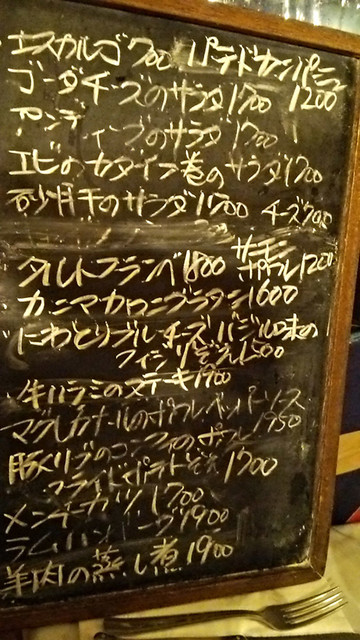 エスカルゴ700 パテドカンパーニュ 1200
ゴーダチーズのサラダ1700
アンディーブのサラダ1700
エビのカダイフ巻のサラダ1700
砂肝のサラダ1700 チーズ700
タルトフランベ1800 サーモン ポワレ1200
カニマカロニグラタン1600
にわとりブルーチーズバジル味の
フィジリぞえ1500
牛ハラミのステーキ1900
マグレカナールのポワレペッパーソース 1950
豚バラのコンフィのポワレ
フライドポテトぞえ1700
メンチカツ1700
ラムハンバーグ1900
羊肉の蒸し煮1900